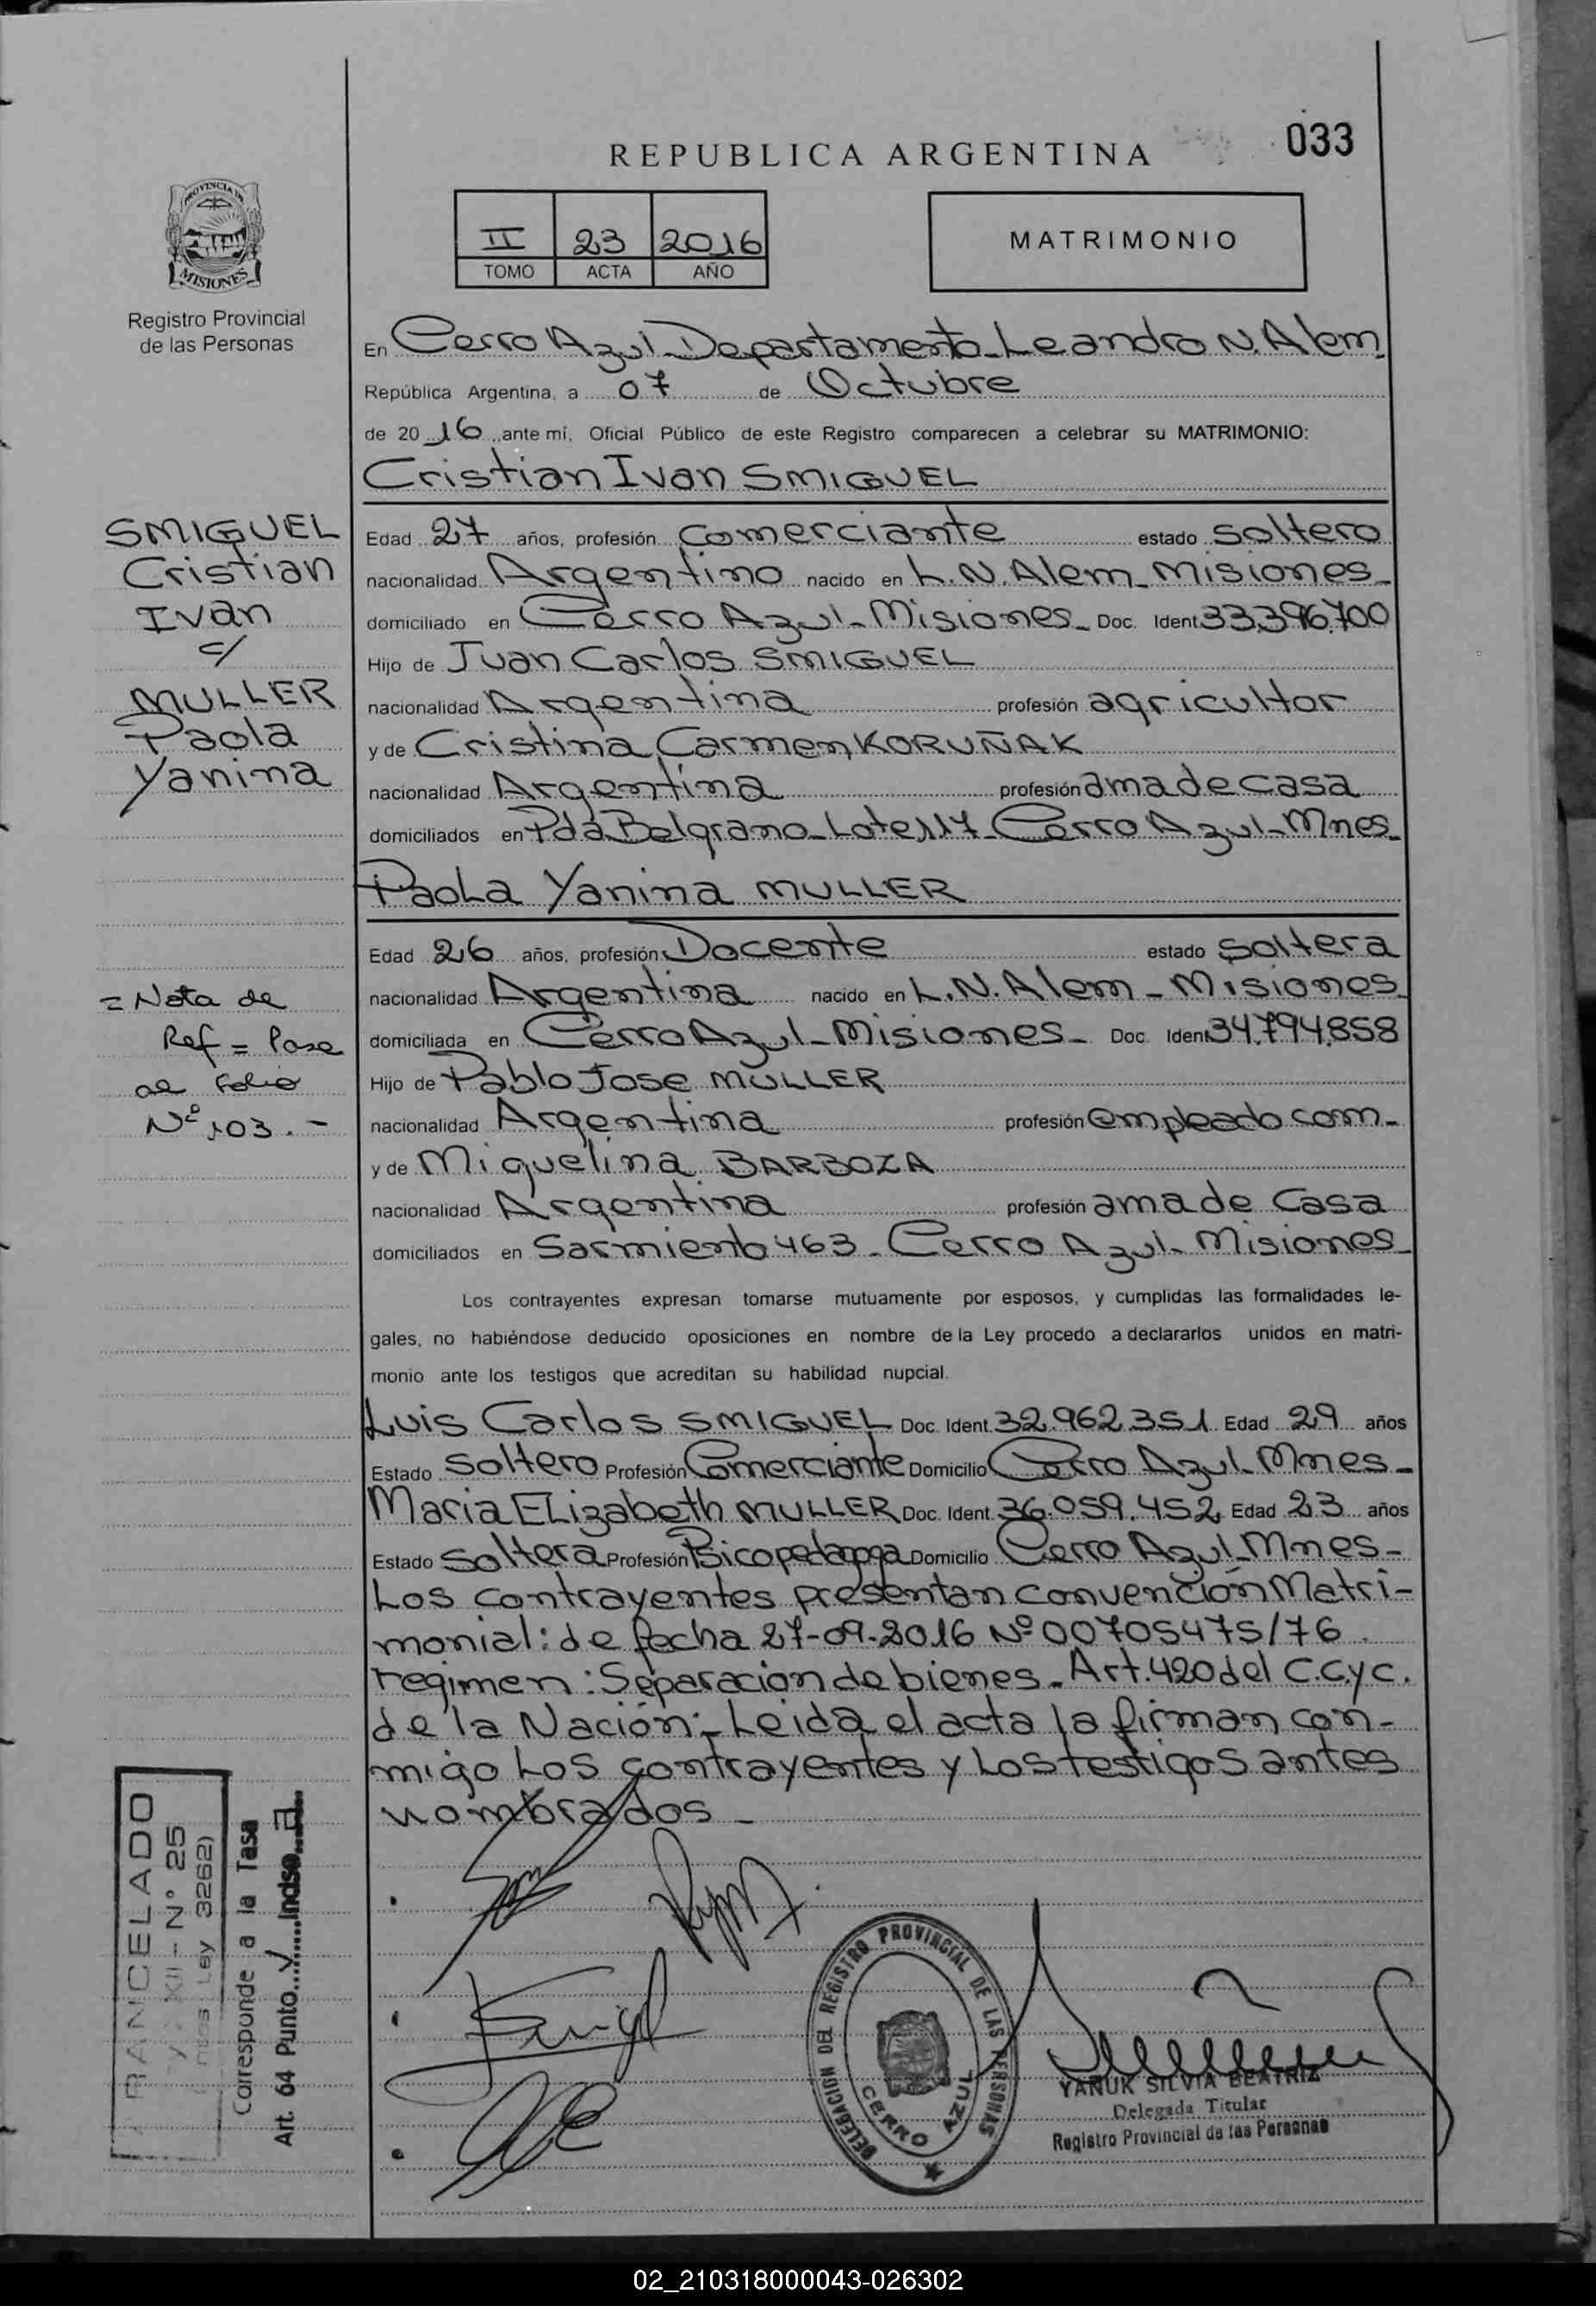 033
REPUBLICA ARGENTINA
II 23 2016
TOMO ACTA AÑO
MATRIMONIO
PROVINCIA DE
MISIONES
Registro Provincial
de las Personas
En Cerro Azul-Departamento-Leandro N. Alem
República Argentina, a 07 de Octubre
de 2016 ante mí, Oficial Público de este Registro comparecen a celebrar su MATRIMONIO:
Cristian Ivan SMIGUEL
SMIGUEL
Cristian
Ivan
c/
MULLER
Paola
Yanina
Edad 27 años, profesión Comerciante estado soltero
nacionalidad Argentino nacido en L.N. Alem-Misiones-
domiciliado en Cerro Azul-Misiones- Doc. Ident. 33.396.700
Hijo de Juan Carlos SMIGUEL
nacionalidad Argentina profesión agricultor
y de Cristina Carmen KORUÑAK
nacionalidad Argentina profesión ama de casa
domiciliados en Pda Belgrano-Lote 117-Cerro Azul-Mnes-
Paola Yanina MULLER
Edad 26 años, profesión Docente estado soltera
nacionalidad Argentina nacido en L.N. Alem-Misiones
domiciliada en Cerro Azul-Misiones- Doc. Ident 34.794.858
Hijo de Pablo Jose MULLER
nacionalidad Argentina profesión empleado com-
y de Miguelina BARBOZA
nacionalidad Argentina profesión ama de casa
domiciliados en Sarmiento 463-Cerro Azul-Misiones-
= Nota de
Ref = Pase
al Folio
Nº 103.-
Los contrayentes expresan tomarse mutuamente por esposos, y cumplidas las formalidades le-
gales, no habiéndose deducido oposiciones en nombre de la Ley procedo a declararlos unidos en matri-
monio ante los testigos que acreditan su habilidad nupcial.
Luis Carlos SMIGUEL Doc. Ident. 32.962.351 Edad 29 años
Estado soltero Profesión Comerciante Domicilio Cerro Azul-Mnes-
Maria Elizabeth MULLER Doc. Ident. 36.059.452 Edad 23 años
Estado soltera Profesión Psicopedagoga Domicilio Cerro Azul-Mnes-
Los contrayentes presentan convención Matri-
monial: de fecha 27-09-2016 Nº 00705475/76
regimen: Separacion de bienes- Art. 420 del C.C.y C.
de la Nación;- Leida el acta la firman con-
migo los contrayentes y los testigos antes
nombrados-
ARANCELADO
XII - N° 25
Ley 3262)
Corresponde a la Tasa
Art. 64 Punto Inciso a
DELEGACION DEL REGISTRO PROVINCIAL DE LAS PERSONAS
CERRO AZUL
YAÑUK SILVIA BEATRIZ
Delegada Titular
Registro Provincial de las Personas
02_210318000043-026302